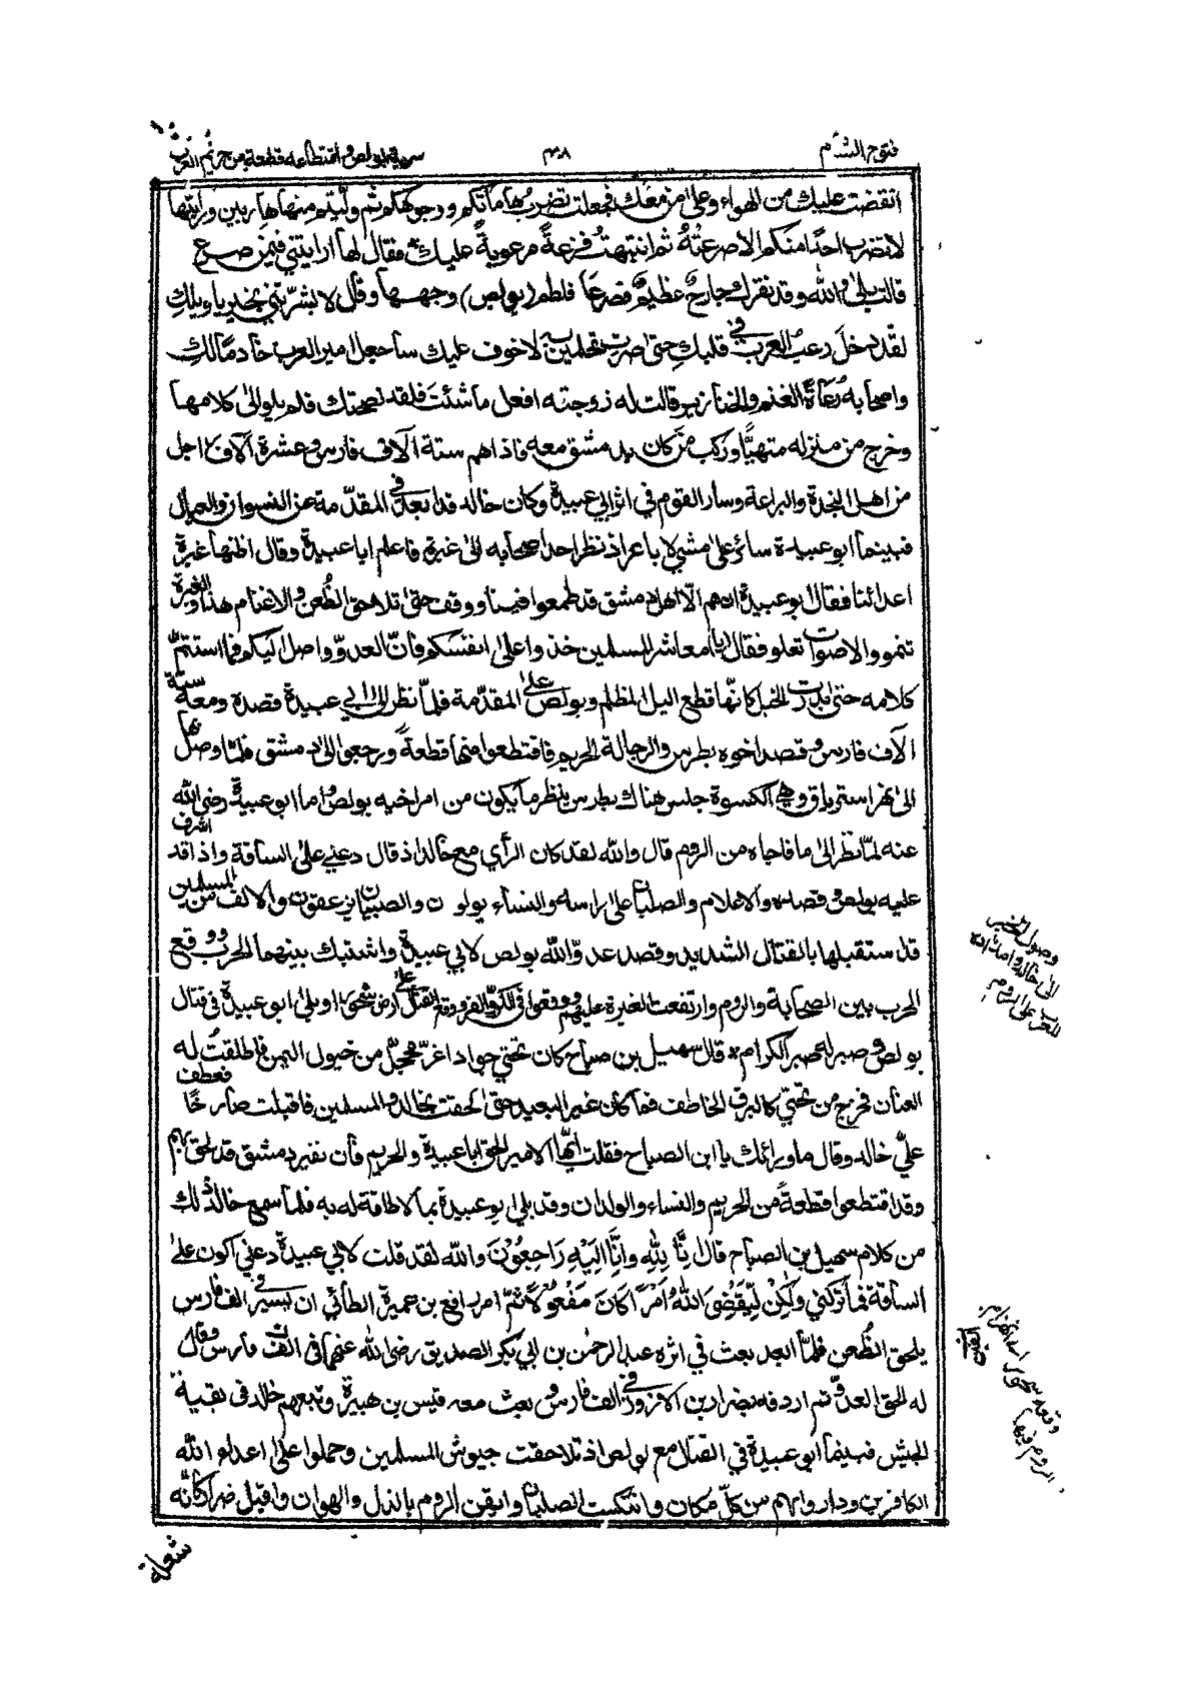 فتوح الشام
٣٨
سرية بولص واقتطاعه قطعة من حريم العرب
انقضت عليك من الهواء وعلى من معك فجعلت تضرب بها هاماتكم ووجوهكم ثم وليتم منها هاربين ورايتها
لا تضرب احدا منكم الا صرعته ثم انتبهت فزعة مرعوبة عليك فقال لها ارايتني فيمن صرع
قالت بلى والله وقد نقرك جارح عظيم فصرعا فلطم (بولص) وجهها وقال لا بشرتني بخير يا ويلك
لقد دخل رعب العرب في قلبك حتى صرت تحلمين به لا خوف عليك ساجعل امير العرب خادما لك
واصحابه رعاة الغنم والخنازير وقالت له زوجته افعل ما شئت فلقد نصحتك فلم يلو الى كلامها
وخرج من منزله متهيا وركب من كان بدمشق معه فاذا هم ستة آلاف فارس وعشرة آلاف راجل
من اهل النجدة والبراعة وسار القوم في اثر ابي عبيدة وكان خالد قد ابعد في المقدمة عن النسوان والعيال
فبينما ابو عبيدة سائر على مشي الاباعر اذ نظر احد اصحابه الى غبرة فاعلم ابا عبيدة وقال اظنها غبرة
اعدائنا فقال ابو عبيدة ان هم الا اهل دمشق قد طمعوا فينا ووقف حتى تلاحق الظعن والاغنام هذا والغبرة
تنمو والاصوات تعلو فقال يا معاشر المسلمين خذوا على انفسكم فان العدو واصل اليكم فما استتم
كلامه حتى بدرت الخيل كانها قطع الليل المظلم وبولص على المقدمة فلما نظر الى ابي عبيدة قصده ومعه ستة
آلاف فارس وقصد اخوه بطرس والرجالة الحريم فاقتطعوا منها قطعة ورجعوا الى دمشق فلما وصل بها
الى نهر استرياق وهي الكسوة جلس هناك بطرس ينظر ما يكون من امر اخيه بولص واما ابو عبيدة رضي الله
عنه لما نظر الى ما فاجاه من الروم قال والله لقد كان الرأي مع خالد اذ قال دعني على الساقة واذا قد اشرف
عليه بولص وقصده والاعلام والصلبان على راسه والنساء يولولون والصبيان يزعقون والالف من المسلمين
قد استقبلها بالقتال الشديد وقصد عدو الله بولص لابي عبيدة واشتبك بينهما الحرب ووقع
الحرب بين الصحابة والروم وارتفعت الغبرة عليهم ووقعوا في الكر والفر وقع القتال على ارض شحورا وبلي ابو عبيدة في قتال
بولص وصبر له صبر الكرام قال سهيل بن صباح كان تحتي جواد اغر محجل من خيول اليمن فاطلقت له
العنان فخرج من تحتي كالبرق الخاطف فما كان غير البعيد حتى لحقت بخالد والمسلمين فاقبلت صارخا فعطف
علي خالد وقال ما ورائك يا ابن الصباح فقلت ايها الامير الحق ابا عبيدة والحريم فان نفير دمشق قد لحق بهم
وقد اقتطعوا قطعة من الحريم والنساء والولدان وقد بلي ابو عبيدة بما لا طاقة له به فلما سمع خالد ذلك
من كلام سهيل بن الصباح قال إنا لله وإنا إليه راجعون والله لقد قلت لابي عبيدة دعني اكون على
الساقة فما تركني ولكن ليقضي الله أمرا كان مفعولا ثم امر رافع بن عميرة الطائي ان يسير في الف فارس
يلحق الظعن فلما ابعد بعث في اثره عبد الرحمن بن ابي بكر الصديق رضي الله عنهما في الف فارس وقال
له الحق العدو ثم اردفه بضرار بن الازور في الف فارس وبعث معه قيس بن هبيرة وتبعهم خالد في بقية
الجيش فبينما ابو عبيدة في القتال مع بولص اذ تلاحقت جيوش المسلمين وحملوا على اعداء الله
الكافرين وداروا بهم من كل مكان وانتكست الصلبان وايقن الروم بالذل والهوان واقبل ضرار كانه
شعلة
وصول الخبر
الى خالد وامداده
للعرب على الروم